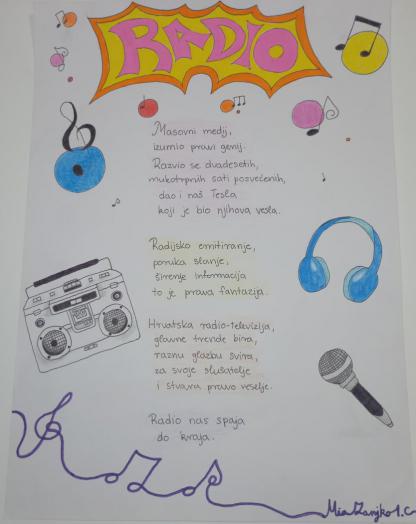 RADIO
Masovni medij,
izumio pravi genij.
Razvio se dvadesetih,
mukotrpnih sati posvećenih,
dao i naš Tesla
koji je bio njihova vesla.
Radijsko emitiranje,
poruka slanje,
širenje informacija
to je prava fantazija.
Hrvatska radio-televizija,
glavne trende bira,
raznu glazbu svira,
za svoje slušatelje
i stvara pravo veselje.
Radio nas spaja
do kraja.
Mia 1.C